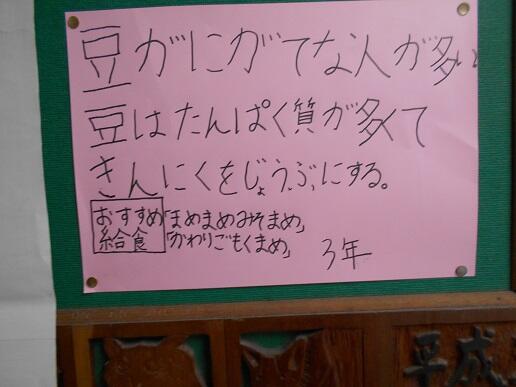 豆がにがてな人が多い
豆はたんぱく質が多くて
きんにくをじょうぶにする。
おすすめ給食
「まめまめみそまめ」
「かわりごもくまめ」
3年
平成